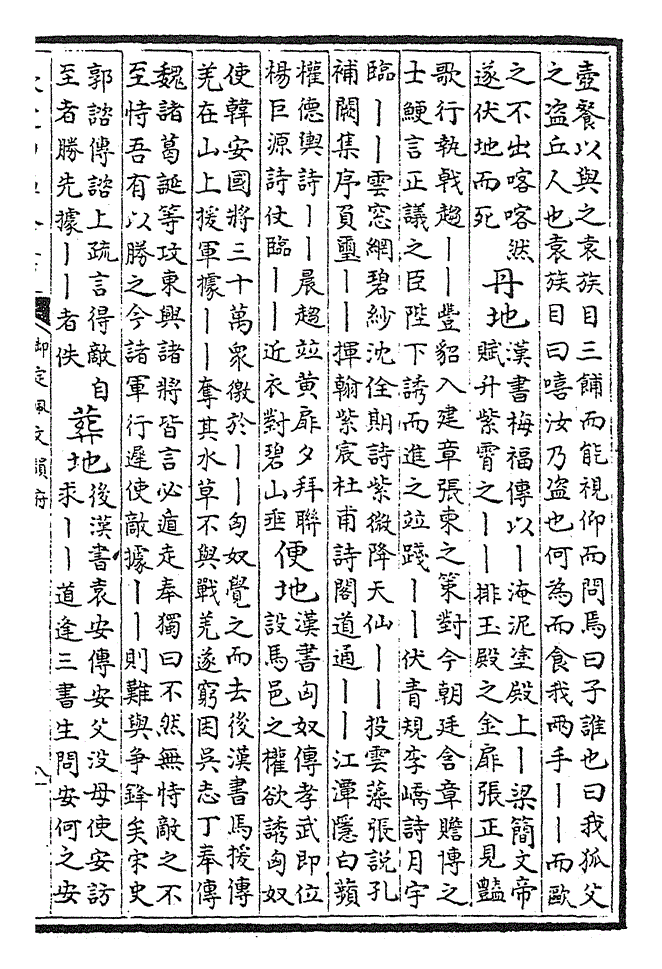 壺餐以與之袁族目三餔而能視仰而問焉曰子誰也曰我狐父
之盜丘人也袁族目曰嘻汝乃盜也何為而食我兩手丨丨而歐
之不出喀喀然
遂伏地而死
丹地
漢書梅福傳以丨淹泥塗殿上丨梁簡文帝
賦升紫霄之丨丨排玉殿之金扉張正見豔
歌行執戟超丨丨豐貂入建章張柬之策對今朝廷含章贍博之
士鯁言正議之臣陛下誘而進之竝踐丨丨伏青規李嶠詩月宇
臨丨丨雲窓網碧紗沈佺期詩紫微降天仙丨丨投雲藻張説孔
補闕集序負璽丨丨揮翰紫宸杜甫詩閣道通丨丨江潭隱白蘋
權德輿詩丨丨晨趨竝黃扉夕拜聯
楊巨源詩仗臨丨丨近衣對碧山垂
便地
漢書匈奴傳孝武即位
設馬邑之權欲誘匈奴
使韓安國將三十萬衆徼於丨丨匈奴覺之而去後漢書馬援傳
羌在山上援軍據丨丨奪其水草不與戰羌遂窮困吳志丁奉傳
魏諸葛誕等攻東興諸將皆言必遁走奉獨曰不然無恃敵之不
至恃吾有以勝之今諸軍行遲使敵據丨丨則難與争鋒矣宋史
郭諮傳諮上疏言得敵自
至者勝先據丨丨者佚
葬地
後漢書袁安傳安父没母使安訪
求丨丨道逢三書生問安何之安
御定佩文韻府